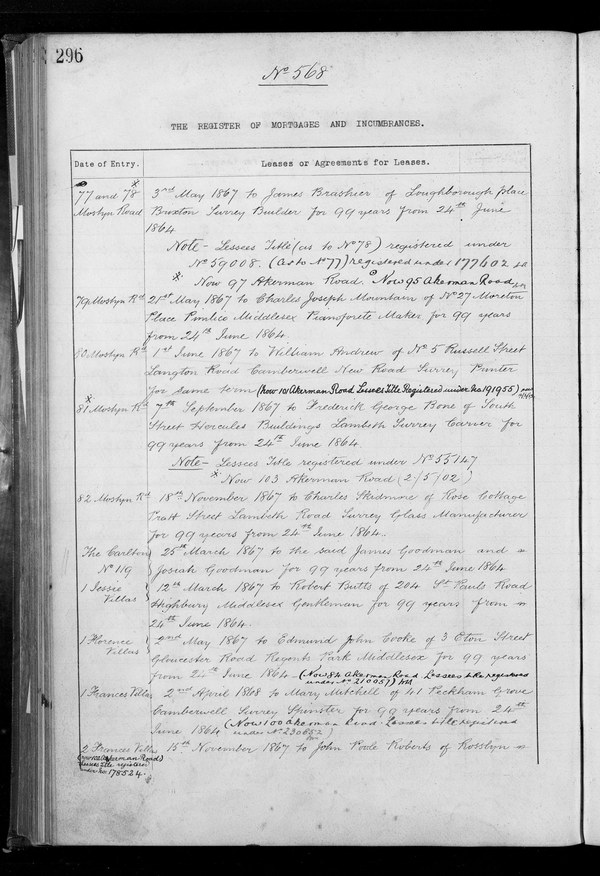 296
No 568
THE REGISTER OF MORTGAGES AND INCUMBRANCES.
Date of Entry.
Leases or Agreements for Leases.
77 and 78 x
Mostyn Road
3rd May 1867 to James Brashier of Loughborough place
Brixton Surrey Builder for 99 years from 24th June
1864
Note - Lessees Title (as to No 78) registered under
No 59008. (As to No 77) registered under 177402
x Now 97 Akerman Road. Now 95 Akerman Road
79 Mostyn Rd 21st May 1867 to Charles Joseph Mountain of No 27 Moreton
Place Pimlico Middlesex Pianoforte Maker for 99 years
from 24th June 1864.
80 Mostyn Rd 1st June 1867 to William Andrew of No 5 Russell Street
Langton Road Camberwell New Road Surrey Painter
for same term (Now 101 Akerman Road Lessees Title Registered under No 191955)
x
81 Mostyn Rd 7th September 1867 to Frederick George Bone of South
Street Hercules Buildings Lambeth Surrey Carver for
99 years from 24th June 1864.
Note - Lessees Title registered under No 55147
x Now 103 Akerman Road (2/5/02)
82 Mostyn Rd 18th November 1867 to Charles Skidmore of Rose Cottage
Pratt Street Lambeth Road Surrey Glass Manufacturer
for 99 years from 24th June 1864.
The Carlton
No 119
25th March 1867 to the said James Goodman and
Josiah Goodman for 99 years from 24th June 1864
1 Jessie
Villas
12th March 1867 to Robert Butts of 204 St Pauls Road
Highbury Middlesex Gentleman for 99 years from
24th June 1864.
1 Florence
Villas
2nd May 1867 to Edmund John Cooke of 3 Eton Street
Gloucester Road Regents Park Middlesex for 99 years
from 24th June 1864 (Now 84 Akerman Road Lessees title registered
under No 210057)
1 Frances Villas 2nd April 1868 to Mary Mitchell of 41 Peckham Grove
Camberwell Surrey Spinster for 99 years from 24th
June 1864 (Now 100 Akerman Road. Lessees title registered
under No 230852)
2 Frances Villa 15th November 1867 to John Poole Roberts of Rosslyn
(Akerman Road)
Lessees title registered
under No 178524.